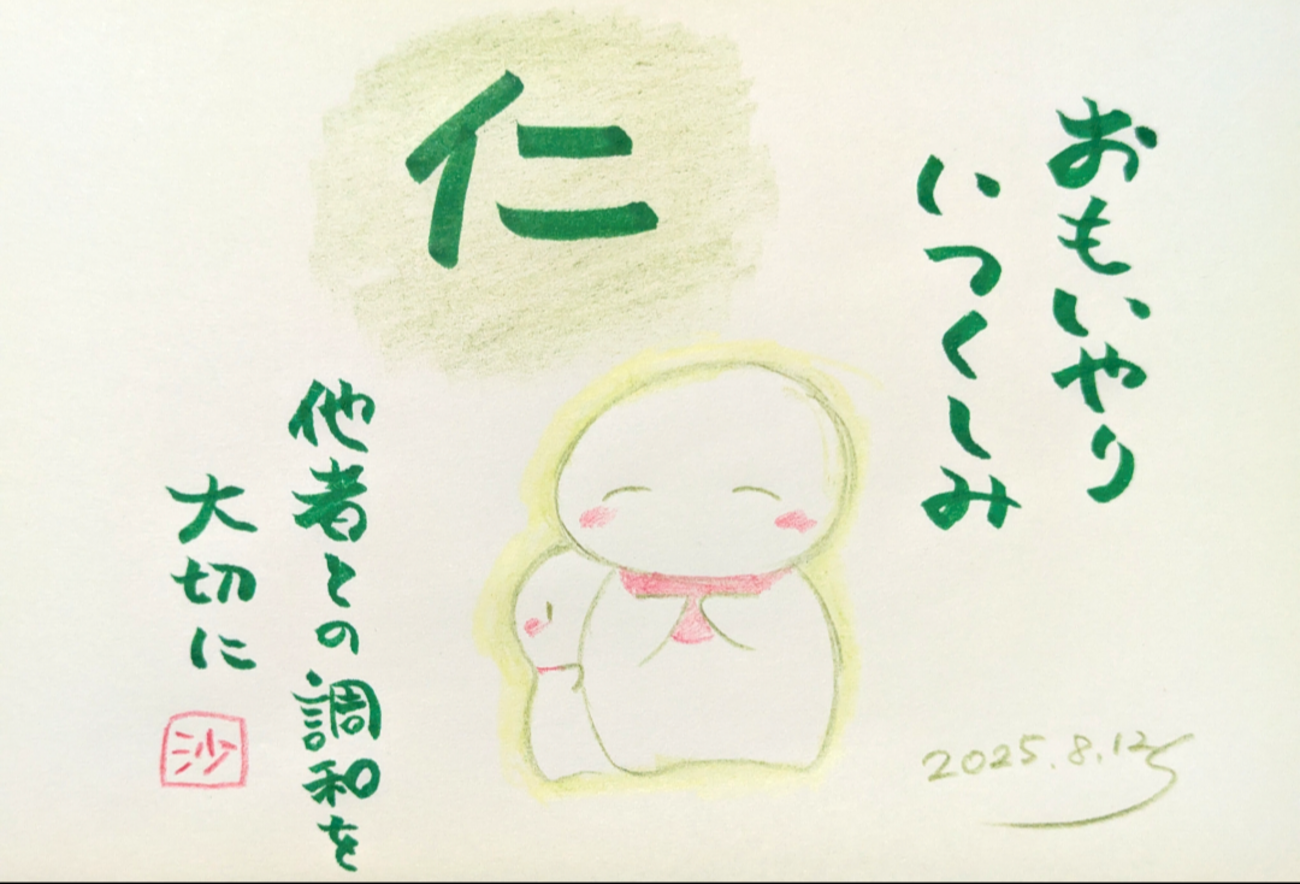 おもいやり
いつくしみ
仁
他者との調和を
大切に
沙
2025.8.12